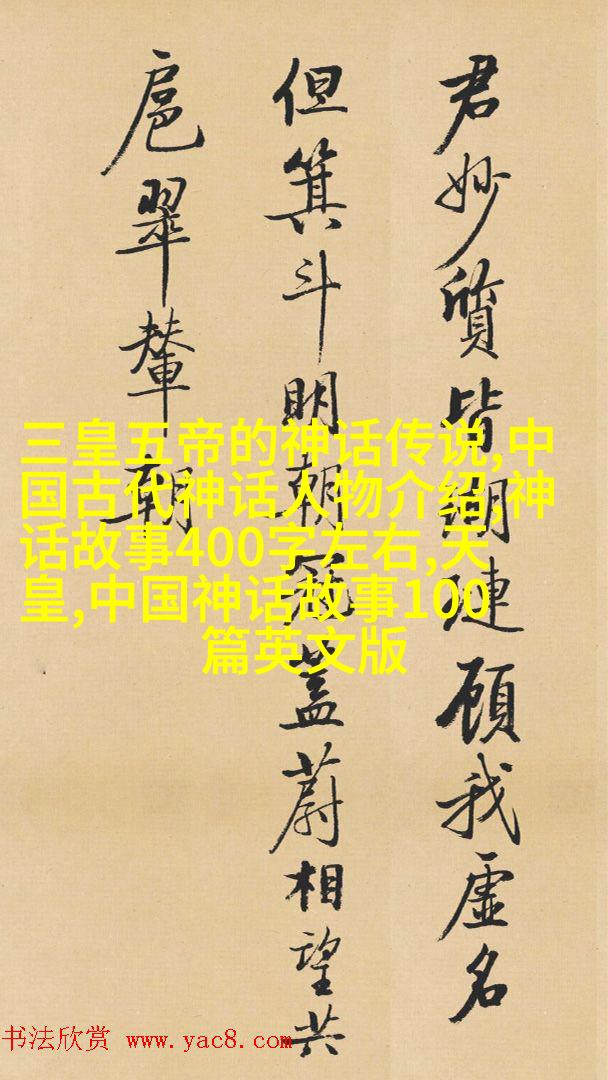 君妙質皆瑚璉顧我虛名
但箕斗明朝冠蓋蔚相望共
扈翠輦朝
三皇五帝的神话传说,中
国古代神话人物介绍,神
话故事400字左右,天
皇,中国神话故事100
篇英文版
书法欣赏 www.yac8.com